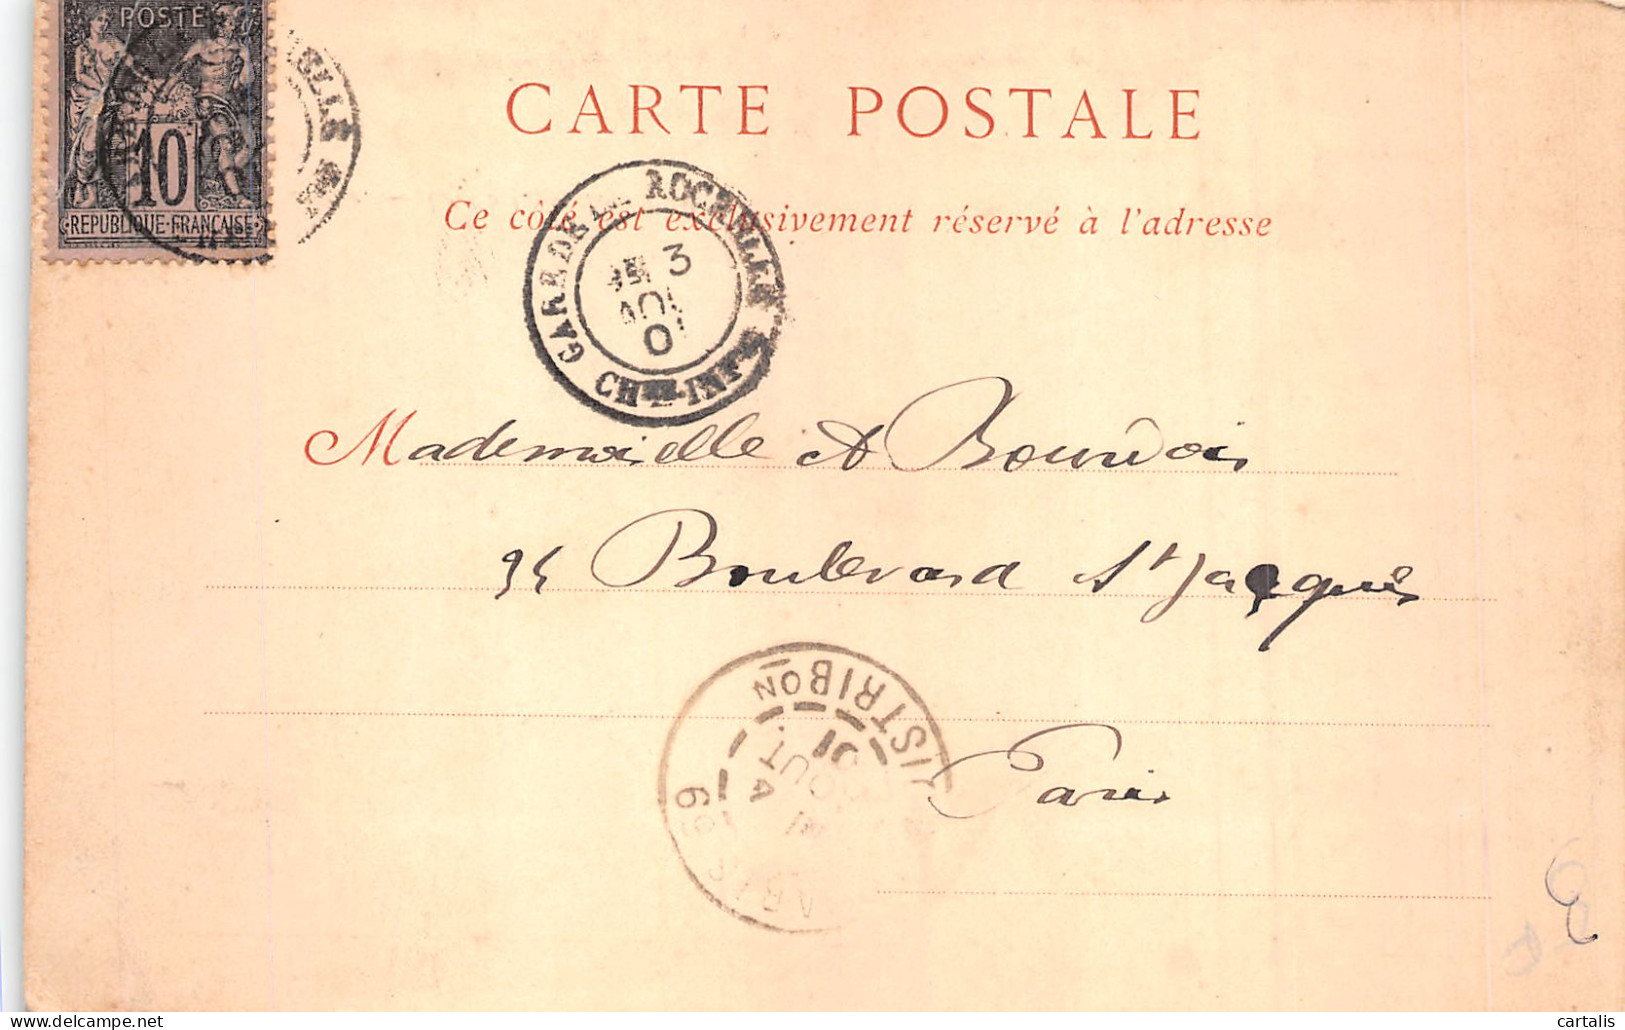 POSTE
10
REPUBLIQUE-FRANÇAISE
CARTE POSTALE
Ce côté est exclusivement réservé à l'adresse
GARE DE LA ROCHELLE
3
AOU
01
CH INF
Mademoiselle A Bourdois
Boulevard St Jacques
DISTRIBON
4
AOUT
01
PARIS
Paris
delcampe.net
cartalis